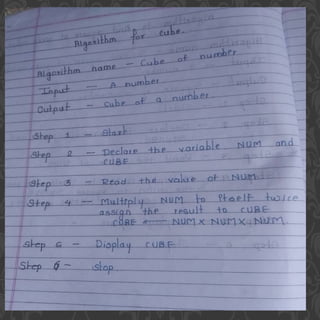 Algorithm for Cube.
Algorithm name - Cube of number
Input - A number
Output - Cube of a number
Step 1 - Start
Step 2 - Declare the variable NUM and
CUBE
Step 3 - Read the value of NUM
Step 4 - Multiply NUM to itself twice
assign the result to CUBE
CUBE ← NUM X NUM X NUM
Step 5 - Display CUBE
Step 6 - Stop